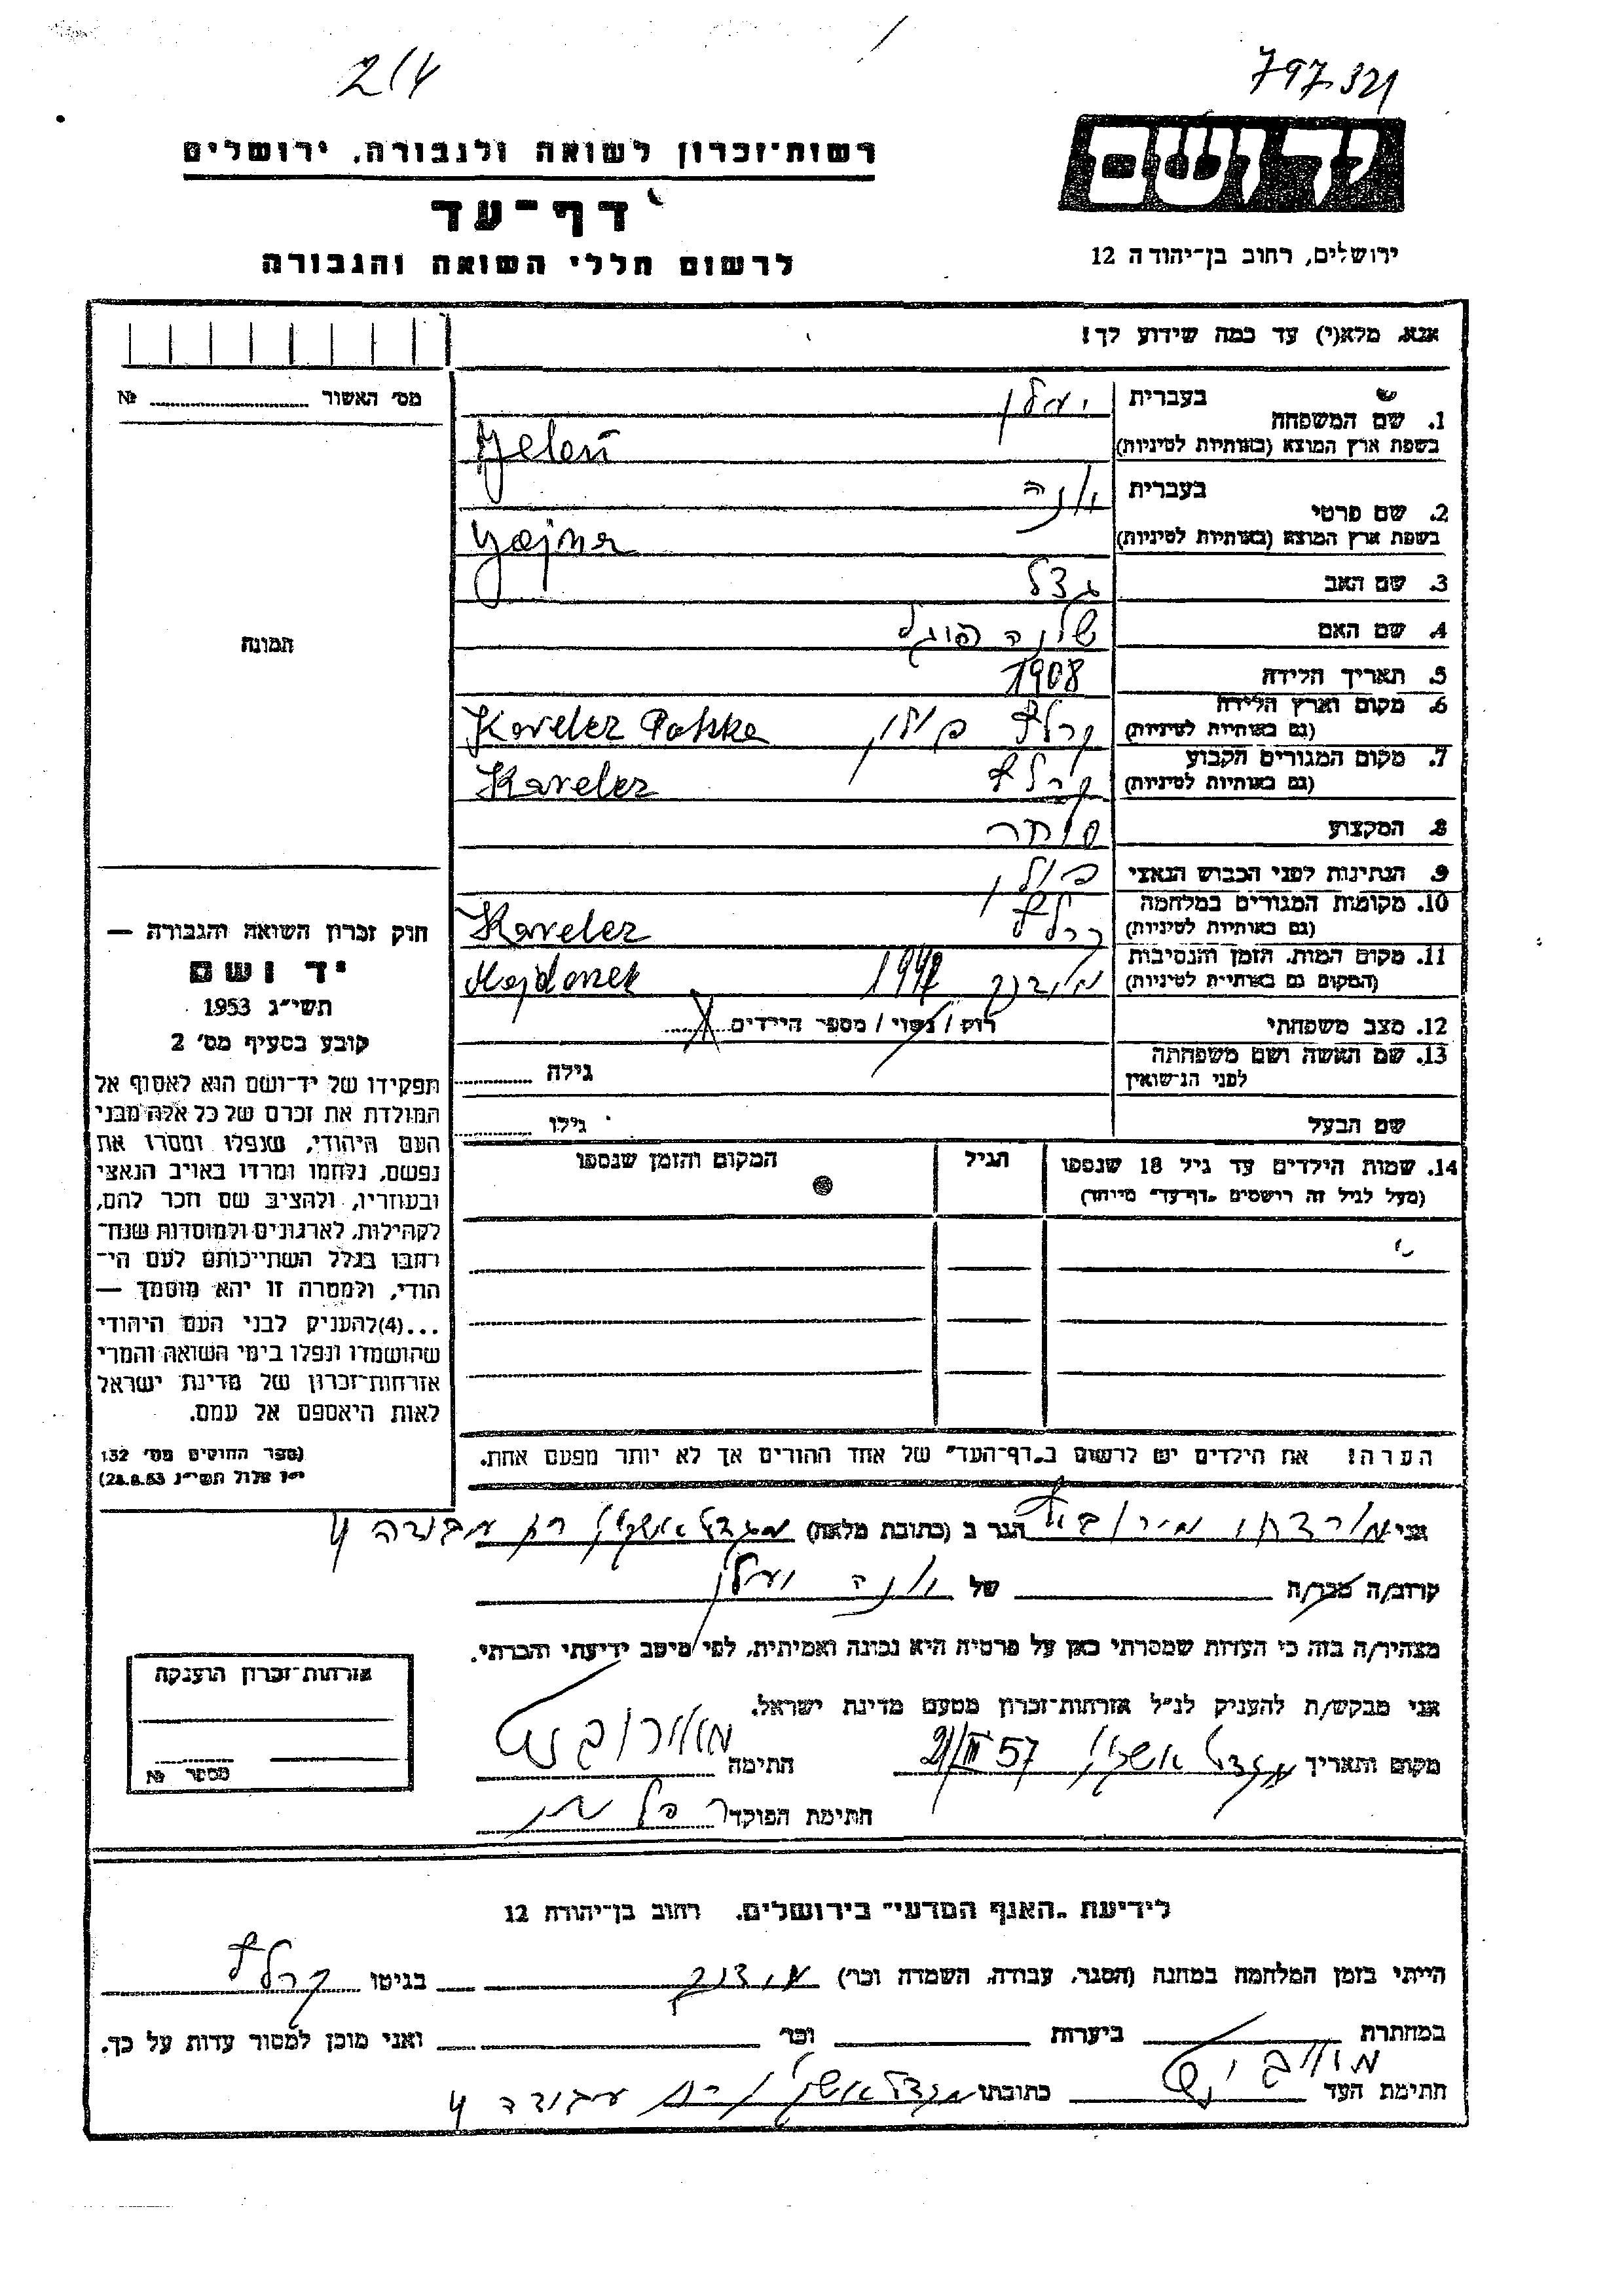 2/4
797321
יד ושם
רשות־זכרון לשואה ולגבורה, ירושלים
דף־עד
לרשום חללי השואה והגבורה
ירושלים, רחוב בן־יהודה 12
אנא, מלא(י) עד כמה שידוע לך!
מס׳ האשור №
1. שם המשפחה
בעברית
בשפת ארץ המוצא (באותיות לטיניות) Jeleń
2. שם פרטי
בעברית
בשפת ארץ המוצא (באותיות לטיניות)
3. שם האב
4. שם האם
5. תאריך הלידה 1908
6. מקום וארץ הלידה
(גם באותיות לטיניות) פולין Polska
7. מקום המגורים הקבוע
(גם באותיות לטיניות)
8. המקצוע סוחר
9. הנתינות לפני הכבוש הנאצי פולין
10. מקומות המגורים במלחמה
(גם באותיות לטיניות)
11. מקום המות, הזמן והנסיבות
(המקום גם באותיות לטיניות) Majdanek
12. מצב משפחתי רוק / נשוי / מספר הילדים
13. שם האשה ושם משפחתה
לפני הנישואין גילה
שם הבעל גילו
14. שמות הילדים עד גיל 18 שנספו
(מעל לגיל זה רושמים „דף־עד״ מייוחד)
הגיל
המקום והזמן שנספו
תמונה
חוק זכרון השואה והגבורה —
יד ושם
תשי״ג 1953
קובע בסעיף מס׳ 2
תפקידו של יד־ושם הוא לאסוף אל
המולדת את זכרם של כל אלה מבני
העם היהודי, שנפלו ומסרו את
נפשם, נלחמו ומרדו באויב הנאצי
ובעוזריו, ולהציב שם וזכר להם,
לקהילות, לארגונים ולמוסדות שנח־
רבו בגלל השתייכותם לעם הי־
הודי, ולמטרה זו יהא מוסמך —
...(4) להעניק לבני העם היהודי
שהושמדו ונפלו בימי השואה והמרי
אזרחות־זכרון של מדינת ישראל
לאות היאספם אל עמם.
(ספר החוקים מס׳ 132
י״ז אלול תשי״ג 28.8.53)
הערה! את הילדים יש לרשום ב„דף־העד״ של אחד ההורים אך לא יותר מפעם אחת.
אני מרדכי הגר ב (כתובת מלאה) מגדל אשקלון עבודה 4
קרוב/ה מכר/ה של
מצהיר/ה בזה כי העדות שמסרתי כאן על פרטיה היא נכונה ואמיתית, לפי מיטב ידיעתי והכרתי.
אני מבקש/ת להעניק לנ״ל אזרחות־זכרון מטעם מדינת ישראל.
מקום ותאריך מגדל אשקלון חתימה
חתימת הפוקד
אזרחות־זכרון הוענקה
מספר №
לידיעת „האגף המדעי״ בירושלים, רחוב בן־יהודה 12
הייתי בזמן המלחמה במחנה (הסגר, עבודה, השמדה וכו׳) בגיטו
במחתרת ביערות וכו׳ ואני מוכן למסור עדות על כך.
חתימת העד כתובתו מגדל אשקלון עבודה 4